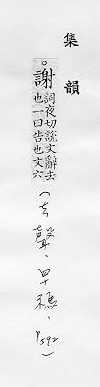 集韻
。謝詞夜切說文辭去
也一曰告也文六
(去聲、早穗、
P592)